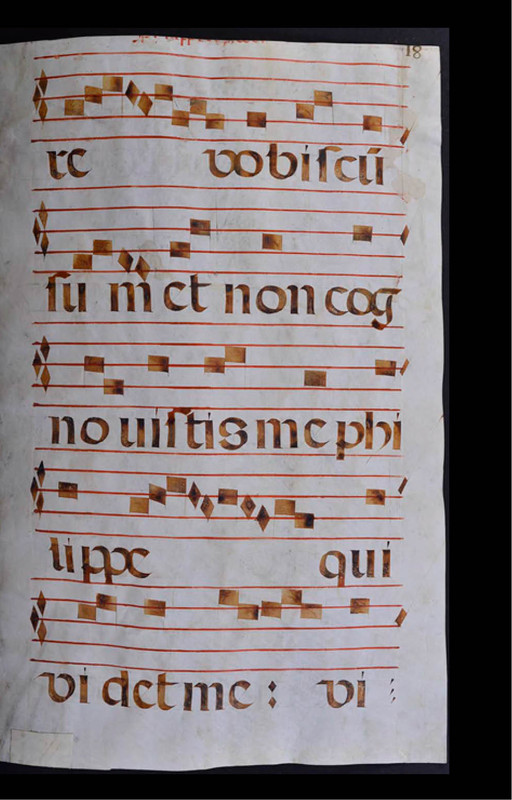 18
re vobiſcū
ſu m̄ et non cog
no uiſtis me phi
lippe qui
vi det me : vi